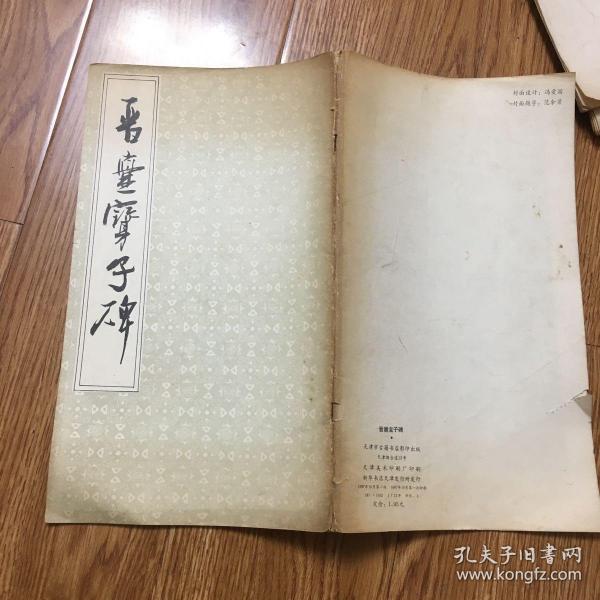 晋爨寶子碑
封面设计：冯爱国
封面题字：范金昌
晋爨宝子碑
天津市古籍书店影印出版
天津美术印刷厂印刷
新华书店天津发行所发行
定价：1.90元
孔夫子旧书网
www.kongfz.com